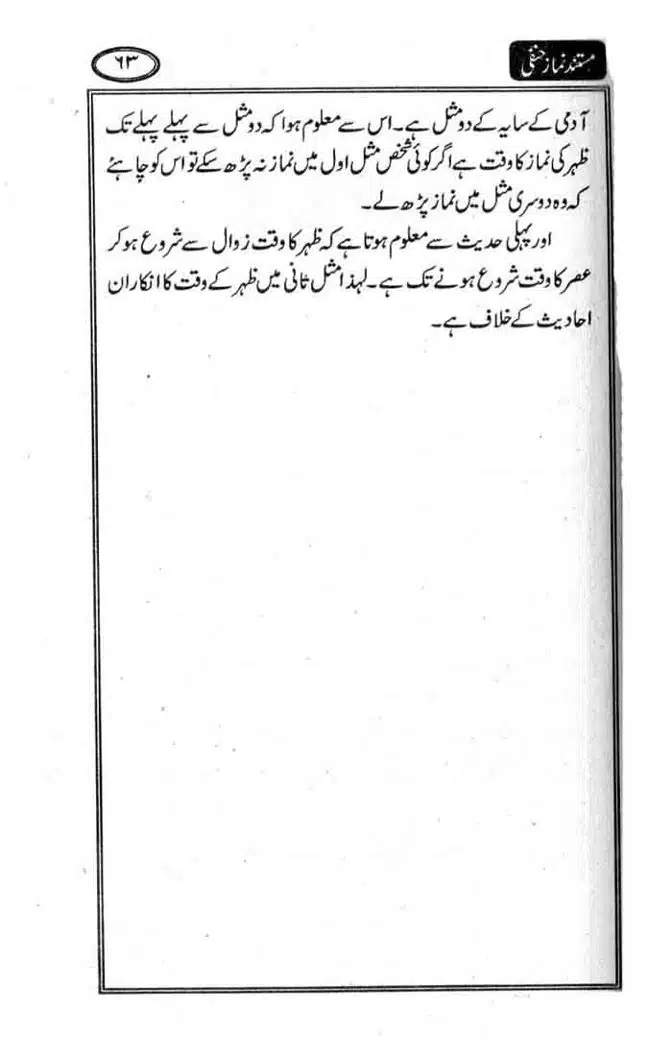 مستند نماز حنفی
۶۳
آدمی کے سایہ کے دو مثل ہے۔ اس سے معلوم ہوا کہ دو مثل سے پہلے پہلے تک
ظہر کی نماز کا وقت ہے اگر کوئی شخص مثل اول میں نماز نہ پڑھ سکے تو اس کو چاہئے
کہ وہ دوسری مثل میں نماز پڑھ لے۔
اور پہلی حدیث سے معلوم ہوتا ہے کہ ظہر کا وقت زوال سے شروع ہو کر
عصر کا وقت شروع ہونے تک ہے۔ لہذا مثل ثانی میں ظہر کے وقت کا انکار ان
احادیث کے خلاف ہے۔